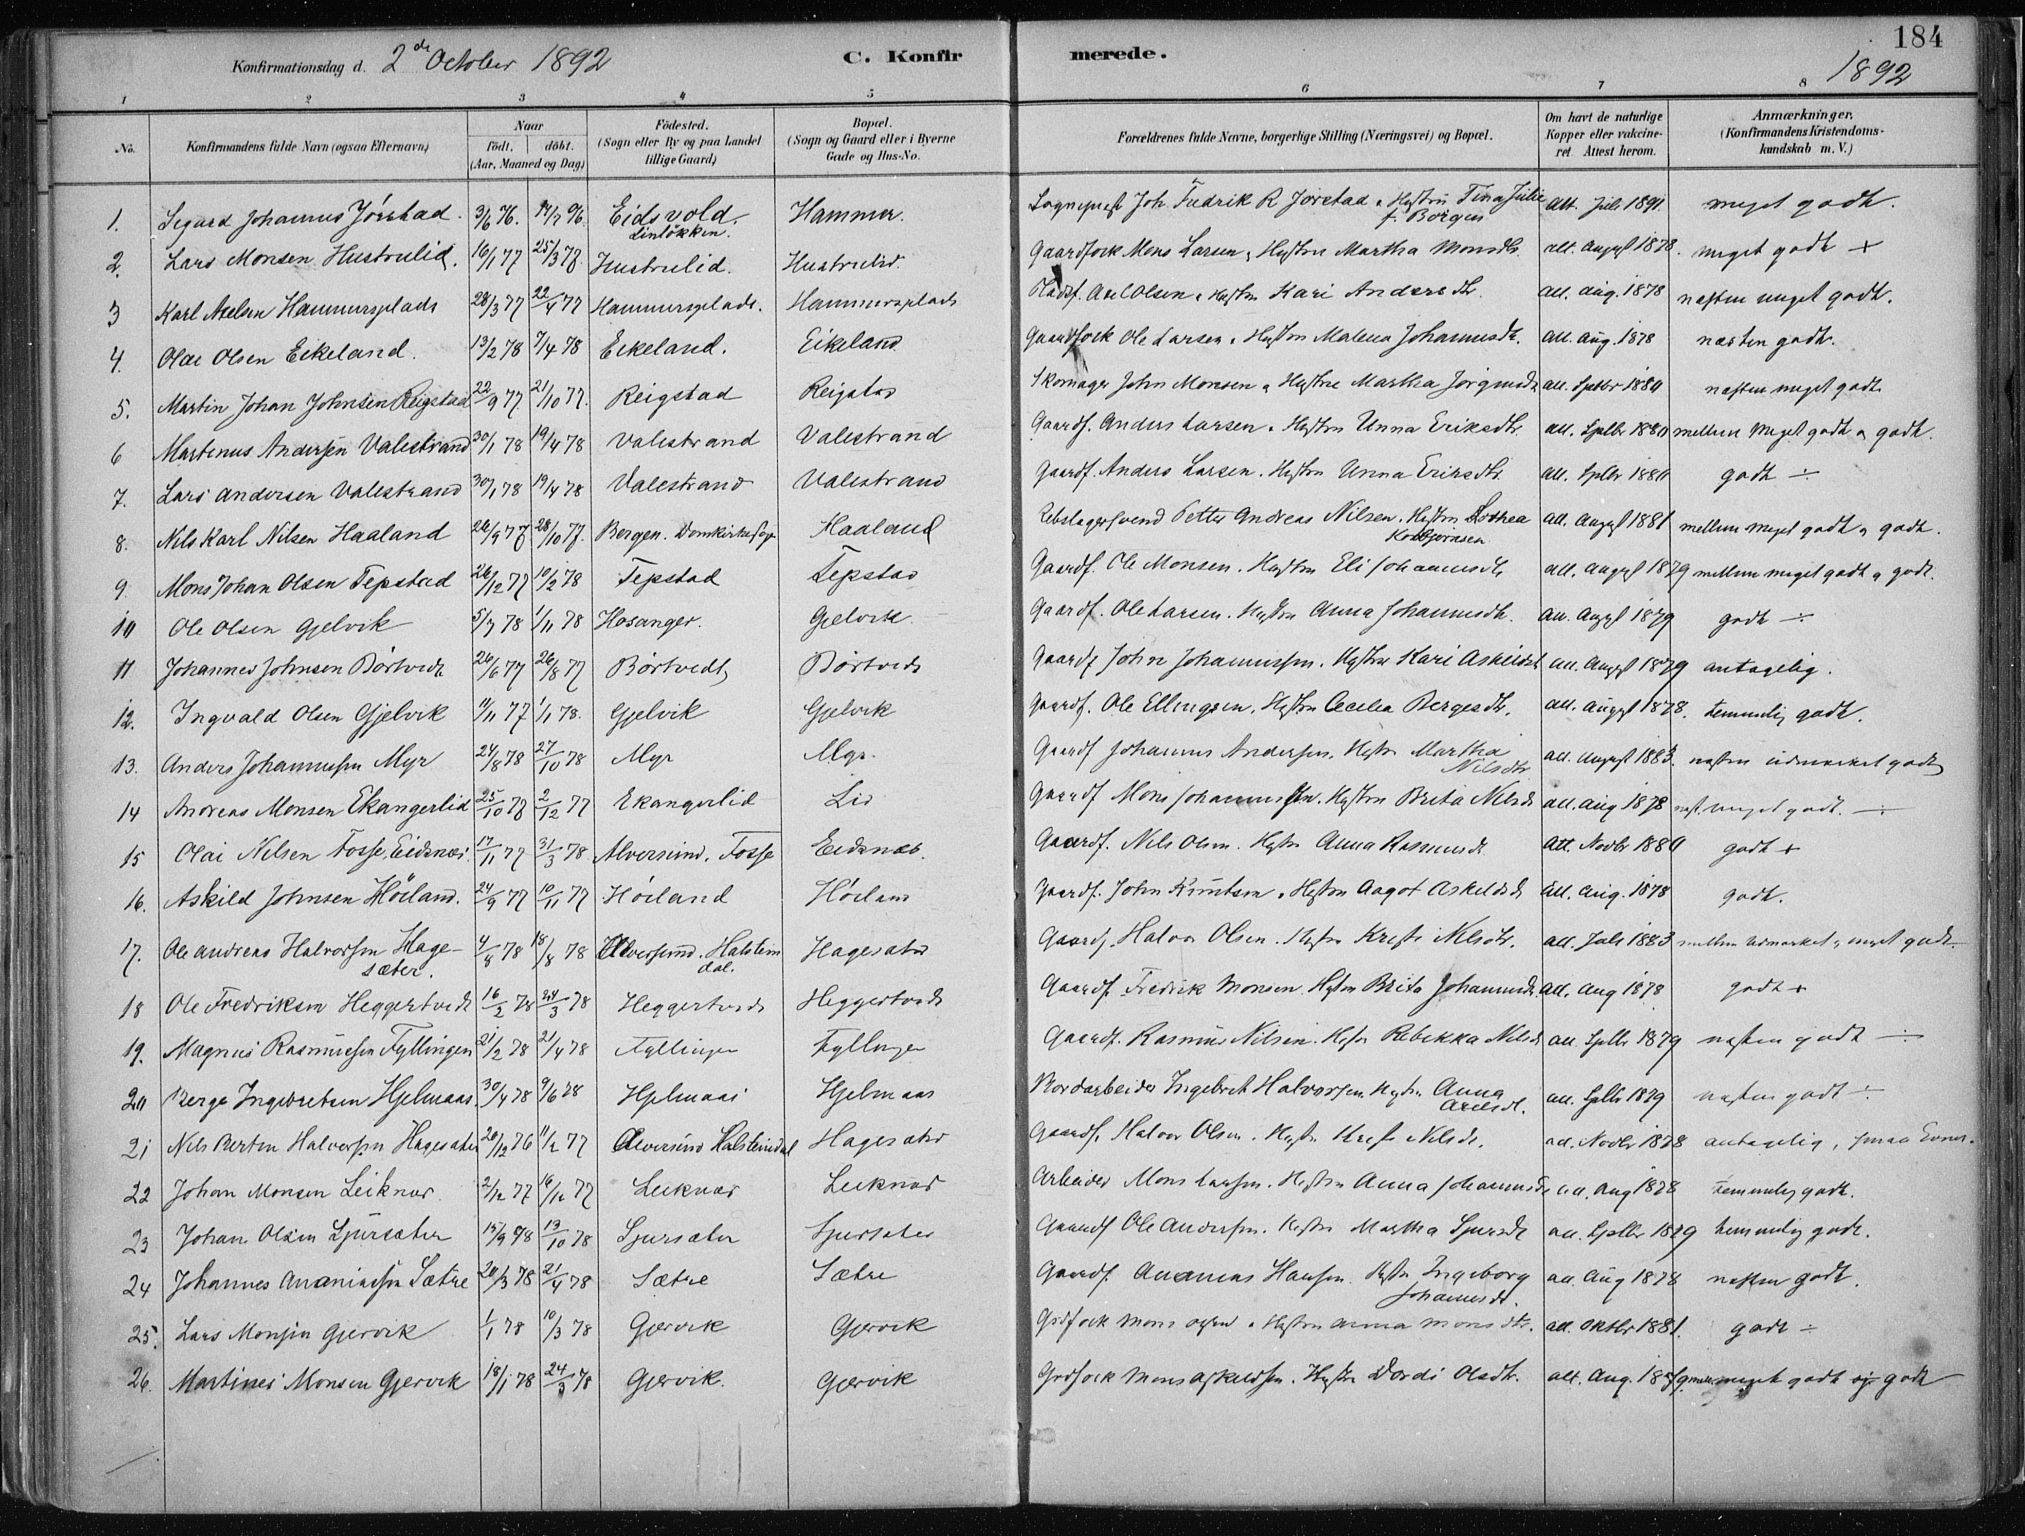 184
Konfirmationsdag d. 2de October 1892 C. Konfirmerede. 1892
1 2 3 4 5 6 7 8
No. Konfirmandens fulde Navn (ogsaa Efternavn) Naar födt. döbt. (Aar, Maaned og Dag) Födested. (Sogn eller By og paa Landet tillige Gaard) Bopæl. (Sogn og Gaard eller i Byerne Gade og Hus-No. Forældrenes fulde Navne, borgerlige Stilling (Næringsvei) og Bopæl. Om havt de naturlige Kopper eller vaccineret Attest herom. Anmærkninger. (Konfirmandens Kristendomskundskab m. V.)
1. Sigurd Johannes Jörstad. 3/6 76. Eidsvold. Linlökken. Hammer. Sogneprest Joh. Fredrik R Jörstad Hustru Tina Julie f. Borgen att. Juli 1891 meget godt.
2. Lars Monsen Hustrulid. 16/1 77 25/3 78 Hustrulid. Hustrulid. Gaardfock Mons Larsen, Hustru Martha Monsdtr att. August 1878. meget godt +
3 Karl Axelsen Hammersplads 28/3 77 22/4 77 Hammersplads. Hammersplads Pladsf. Axel Olsen, Hustru Kari Andersdtr. att. aug. 1878 næsten meget godt.
4. Olai Olsen Eikeland. 13/2 78 7/4 78 Eikeland. Eikeland Gaardfock Ole Larsen, Hustru Malena Johannesdtr. att. aug. 1878 næsten godt.
5. Martin Johan Johnsen Reigstad 22/9 77 21/10 77. Reigstad Reigstad Skomager John Monsen, Hustru Martha Jörgensdtr att. Septbr 1880 næsten meget godt
6 Martinus Andersen Valestrand 30/1 78 19/4 78 Valestrand Valestrand Gaardf. Anders Larsen, Hustru Unna Eriksdtr. att. Septbr 1880 mellem meget godt og godt.
7. Lars Andersen Valestrand 30/1 78 19/4 78 Valestrand Valestrand Gaardf. Anders Larsen. Hustru Unna Eriksdtr. att. Septbr 1880 godt ÷
8. Nils Karl Nilsen Haaland 26/9 77 28/10 77. Bergen. Domkirkesogn Haaland Rebslagersvend Petter Andreas Nilsen, Hustru Dorthea Kolbjørnsen att. August 1881 mellem meget godt og godt.
9. Mons Johan Olsen Tepstad 26/12 77 10/2 78 Tepstad Tepstad Gaardf. Ole Monsen. Hustru Eli Johannesdtr att. August 1879 mellem meget godt og godt.
10 Ole Olsen Gjelvik 5/7 78 1/11 78 Hosanger. Gjelvik. Gaardf. Ole Larsen. Hustru Anna Johannesdtr. att. August 1879 godt ÷
11 Johannes Johnsen Börtvedt 26/6 77 26/8 77 Börtvedt Börtvedt Gaardf John Johannessen. Hustru Kari Askildsdtr att. August 1879 antagelig.
12. Ingvald Olsen Gjelvik 11/11 77 1/1 78. Gjelvik Gjelvik Gaardf. Ole Ellingsen. Hustru Cecelia Bergesdtr. att. August 1878. temmelig godt.
13. Anders Johannessen Myr 24/8 78 27/10 78 Myr Myr. Gaardf Johannes Andersen. Hustru Martha Nilsdtr att. August 1883. næsten udmærket godt
14 Andreas Monsen Ekangerlid 25/10 77 2/12 77 Ekangerlid Lid Gaardf Mons Johannessen. Hustru Brita Nilsdtr att. aug 1878 næst. meget godt. ÷
15 Olai Nilsen Fosse, Eidsnæs. 17/11 77 31/3 78 Alversund. Fosse Eidsnæs. Gaardf. Nils Olsen. Hustru Anna Rasmusdtr att. Novbr 1880 godt +
16. Askild Johnsen Höiland. 24/9 77 10/11 77 Höiland Höiland Gaardf. John Knutsen, Hustru Aagot Askildsdtr att. Aug. 1878 godt.
17. Ole Andreas Halvorsen Hagesæter. 4/8 78 18/8 78 Alversund. Halsteindal. Hagesæter Gaardf. Halvor Olsen. Hustru Kristi Nilsdtr. att. Juli 1883 mellem udmærket og meget godt.
18 Ole Fredriksen Heggertvedt 16/2 78 24/3 78 Heggertvedt Heggertvedt Gaardf. Fredrik Monsen. Hustru Brita Johannesdtr att. Aug 1878 godt +
19. Magnus Rasmussen Fyllingen 21/2 78 21/4 78 Fyllingen Fyllingen Gaardf. Rasmus Nilsen. Hustru Rebekka Nilsdtr att. Septbr 1879 næsten godt ÷
20 Berge Ingebretsen Hjelmaas 30/4 78 9/6 78 Hjelmaas Hjelmaas Jordarbeider Ingebret Halvorsen. Hustru Anna Axelsdtr. att. Septbr 1879 næsten godt ÷
21 Nils Martin Halvorsen Hagesæter 20/12 76 11/2 77 Alversund Halsteindal Hagesæter Gaardf. Halvor Olsen. Hustru Kristi Nilsdtr. att. Novbr 1878 antagelig, smaa Evner.
22 Johan Monsen Leiknæs. 2/12 77 16/12 77 Leiknæs Leiknæs Arbeider Mons Larsen. Hustru Anna Johannesdtr att. Aug 1878 temmelig godt.
23 Johan Olsen Sjursæter 15/9 78 13/10 78 Sjursæter Sjursæter Gaardf Ole Andersen. Hustru Martha Sjursdtr att. Septbr 1879 temmelig godt.
24 Johannes Ananiassen Sætre 20/3 78 21/4 78 Sætre Sætre Gaardf. Ananias Hansen. Hustru Ingeborg Johannesdtr. att. Aug 1878 næsten godt.
25. Lars Monsen Gjervik 1/1 78 10/3 78 Gjervik Gjervik Grdfock Mons Olsen, Hustru Anna Monsdtr. att. Oktbr 1881. godt ÷
26. Martines Monsen Gjervik 18/1 78 24/3 78 Gjervik. Gjervik Grdfock Mons Askildsen. Hustru Dordi Olsdtr. att. Aug. meget godt og godt